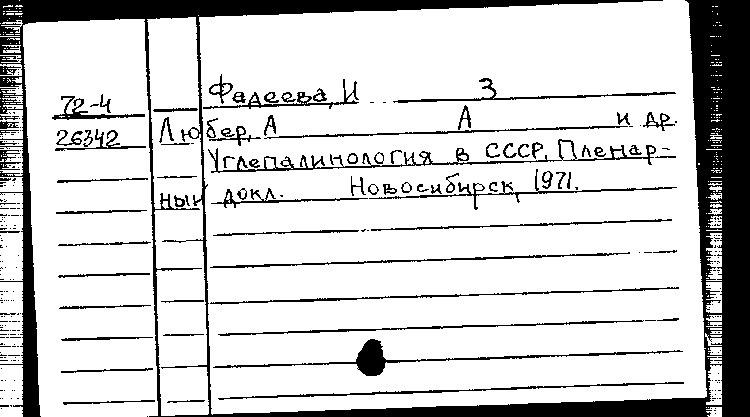 72-4 Фадеева, И З
26342 Любер, А А и др.
Углепалинология в СССР. Пленар-
ный докл. Новосибирск, 1971.